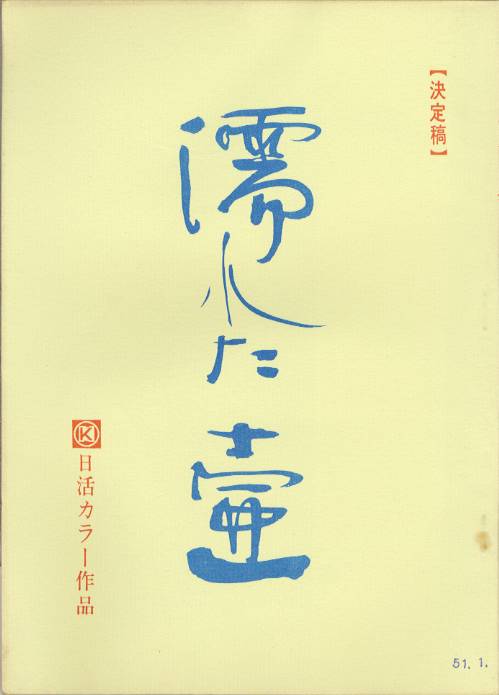 【決定稿】
濡れた壷
K
日活カラー作品
51.1.